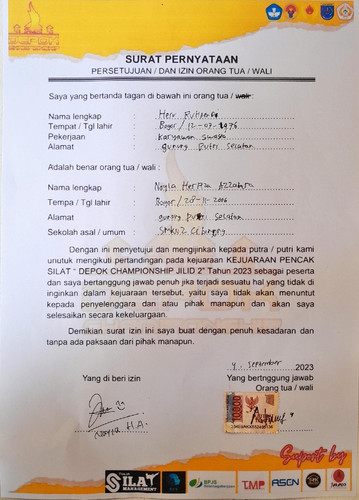 SURAT PERNYATAAN
PERSETUJUAN / DAN IZIN ORANG TUA / WALI
Saya yang bertanda tagan di bawah ini orang tua / wali :
Nama lengkap : Heri
Tempat / Tgl lahir : Bogor / 12-07-1976
Pekerjaan : Karyawan swasta
Alamat : gunung Putri Selatan
Adalah benar orang tua / wali :
Nama lengkap : Nayla Herliza Azzahra
Tempat / Tgl lahir : Bogor / 28-11-2006
Alamat : gunung Putri Selatan
Sekolah asal / umum : SMKN 2 Cibinong
Dengan ini menyetujui dan mengijinkan kepada putra / putri kami
unutuk mengikuti pertandingan pada kejuaraan KEJUARAAN PENCAK
SILAT " DEPOK CHAMPIONSHIP JILID 2" Tahun 2023 sebagai peserta
dan saya bertanggung jawab penuh jika terjadi sesuatu hal yang tidak di
inginkan dalam kejuaraan tersebut, yaitu saya tidak akan menuntut
kepada penyelenggara dan atau pihak manapun dan akan saya
selesaikan secara kekeluargaan.
Demikian surat izin ini saya buat dengan penuh kesadaran dan
tanpa ada paksaan dari pihak manapun.
4, September 2023
Yang di beri izin
Yang bertnggung jawab
Orang tua / wali
Nayla H.A.
10000
Support by
Pencak
SILAT
MANAGEMENT
BPJS
Ketenagakerjaan
TMP
ASCN